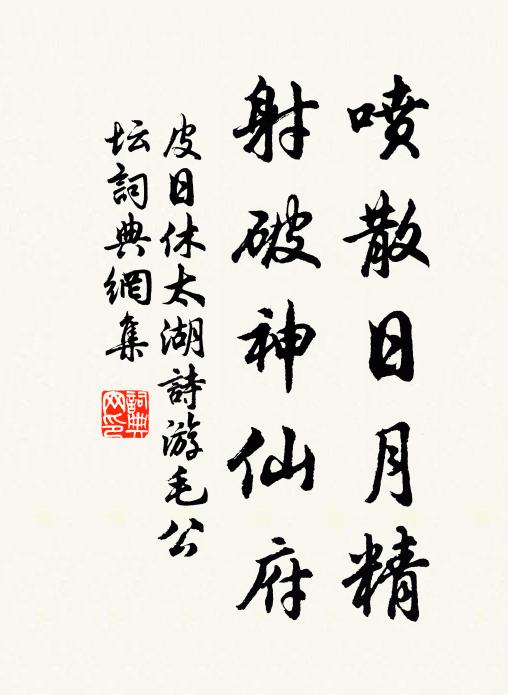 喷散日月精
射破神仙府
皮日休太湖詩游毛公
坛詞典網集
詞典
网印